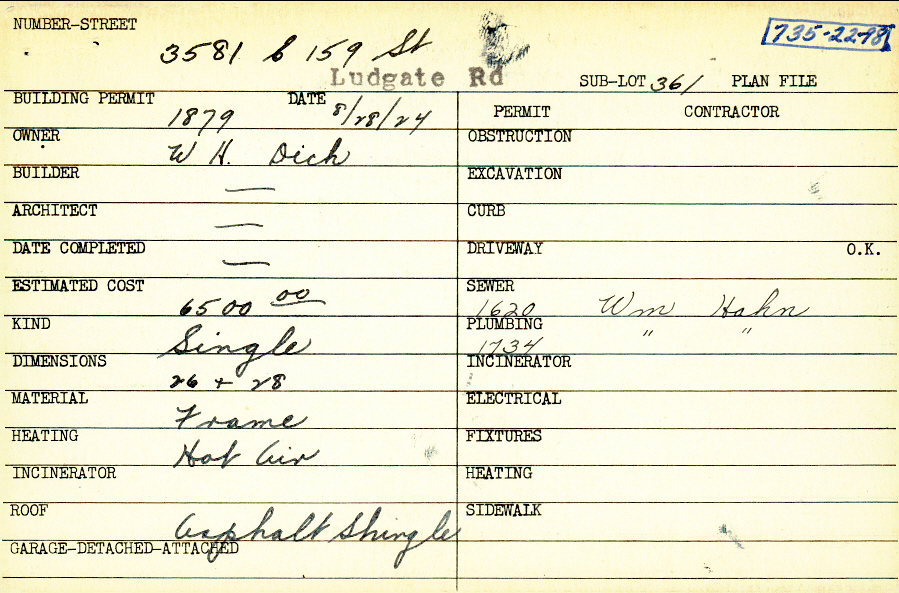 NUMBER-STREET
3581 E 159 St
735-22-98
Ludgate Rd
SUB-LOT 361 PLAN FILE
BUILDING PERMIT 1879 DATE 8/28/24
PERMIT CONTRACTOR
OWNER W H. Dich
OBSTRUCTION
BUILDER —
EXCAVATION
ARCHITECT —
CURB
DATE COMPLETED —
DRIVEWAY O.K.
ESTIMATED COST 6500 00
SEWER 1620 Wm Hahn
KIND Single
PLUMBING 1734 " "
DIMENSIONS 26 + 28
INCINERATOR
MATERIAL Frame
ELECTRICAL
HEATING Hot Air
FIXTURES
INCINERATOR
HEATING
ROOF Asphalt Shingle
SIDEWALK
GARAGE-DETACHED-ATTACHED